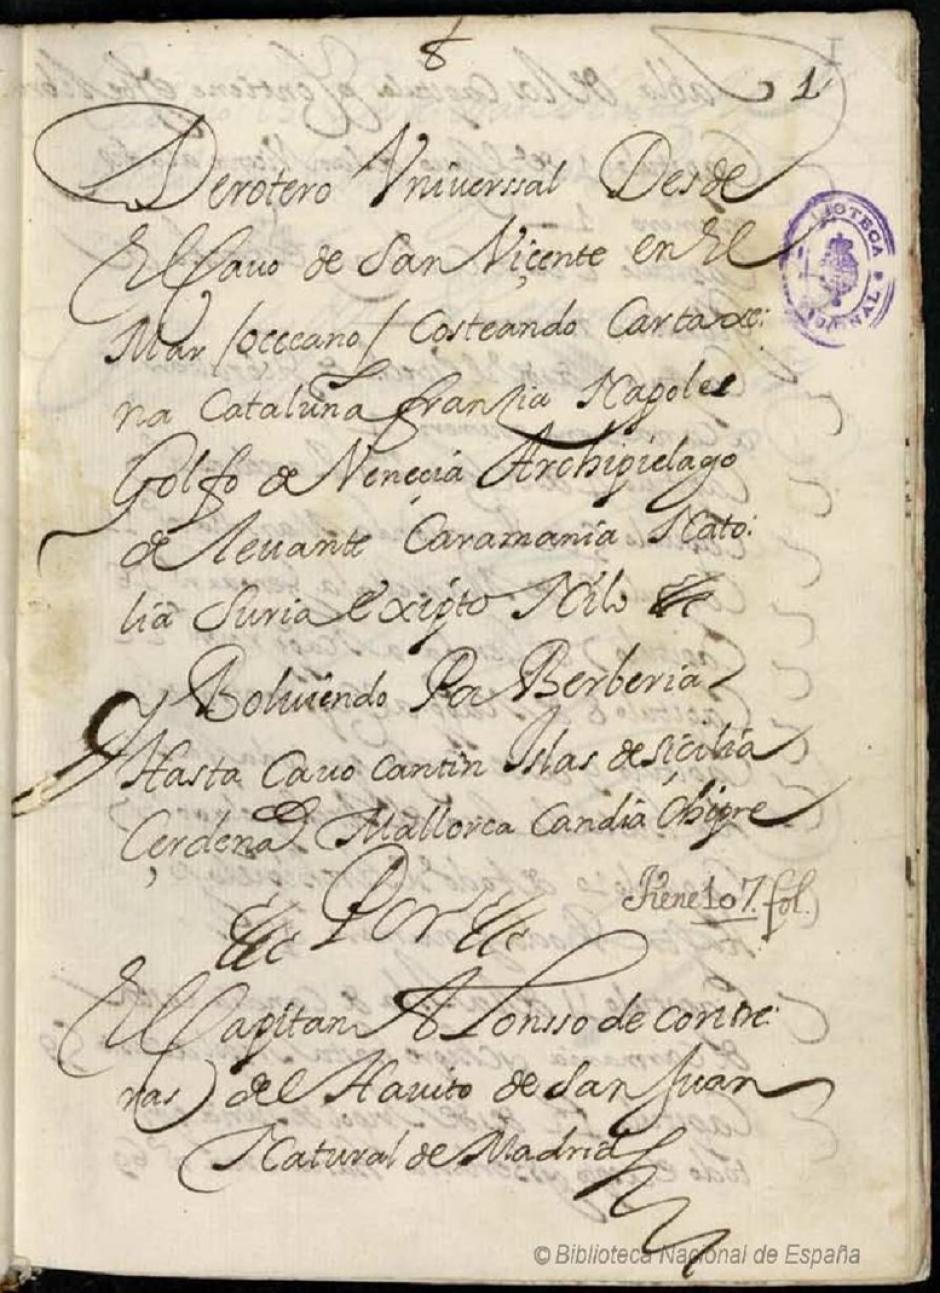 8
1
Derotero Vniuerssal Desde
El Cauo de San Viçente en El
Mar /occeano/ Costeando Cartaxe:
na Cataluña franzia Napoles
Golfo de Veneçia Archipielago
de leuante Caramania Nato:
lia Suria exipto Nilo &c
Y Boluiendo Por Berberia
Hasta Cauo cantin Islas de Siçilia
Çerdeña Mallorca Candia Chipre
tiene 107. fol.
Por
El Capitan Alonsso de contre:
ras del Hauito de San Juan
Natural de Madrid
BIBLIOTECA NACIONAL
© Biblioteca Nacional de España